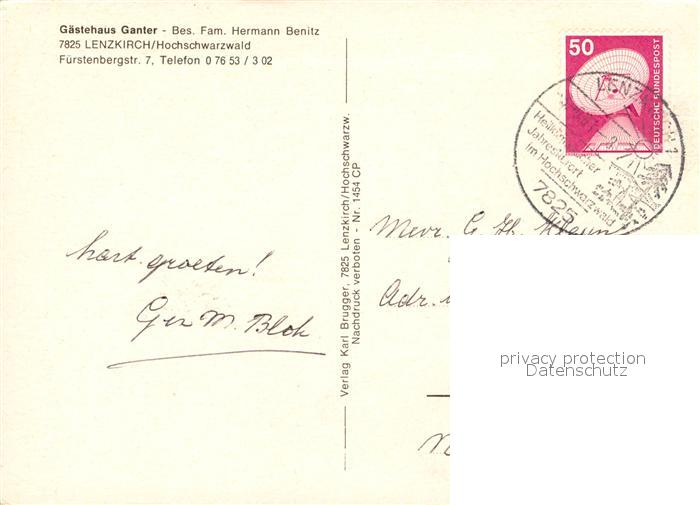 Gästehaus Ganter - Bes. Fam. Hermann Benitz
7825 LENZKIRCH/Hochschwarzwald
Fürstenbergstr. 7, Telefon 0 76 53 / 3 02
50
DEUTSCHE BUNDESPOST
Heilklimatischer
Jahreskurort
im Hochschwarzwald
7825
Verlag Karl Brugger, 7825 Lenzkirch/Hochschwarzw.
Nachdruck verboten - Nr. 1454 CP
hart. groeten!
Ger M. Blok
Mevr. G. Th.
Adr.
privacy protection
Datenschutz